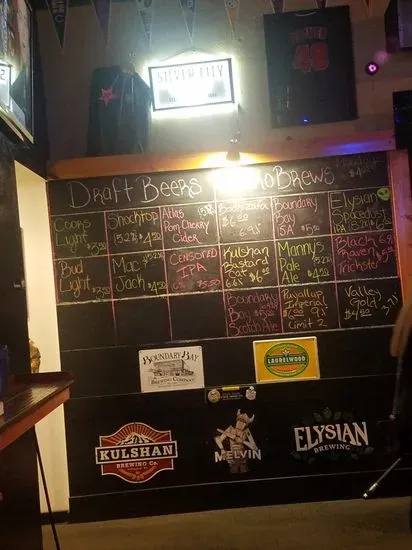 SILVER CITY
48
Draft Beers
Brews
$4
Coors
Light $3.50
Snoqtop
(5.2%) $4.50
Atlas
Pom Cherry
Cider
$6.00
6.9%
Boundary
Bay
SA
Elysian
Spacedust
IPA (8.2%) $6
Bud
Light $3.50
Mac
Jack $4.50
CENSORED
IPA
6.7% $5.50
Kulshan
Bastard
Kat $6
6.6%
Manny's
Pale
Ale $4.50
Black
Raven
Trickster
Boundary
Bay
Scotch Ale
Puyallup
Imperial
$6.00 9%
Limit 2
Valley
Gold
$4.00
BOUNDARY BAY
BREWING COMPANY
LAURELWOOD
KULSHAN
BREWING Co.
MELVIN
ELYSIAN
BREWING